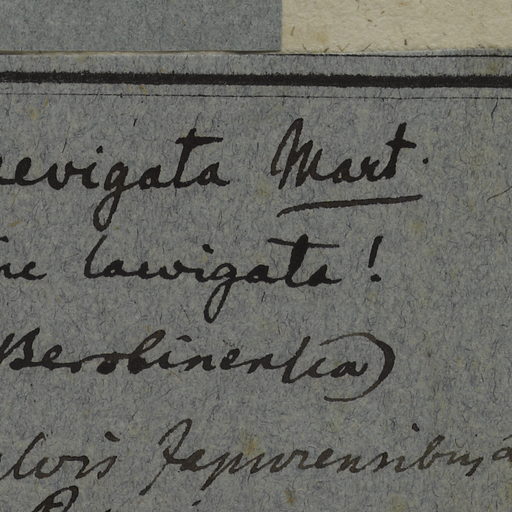 aevigata Mart.
ne laevigata!
Berolinensia)
lvis Japurensibus